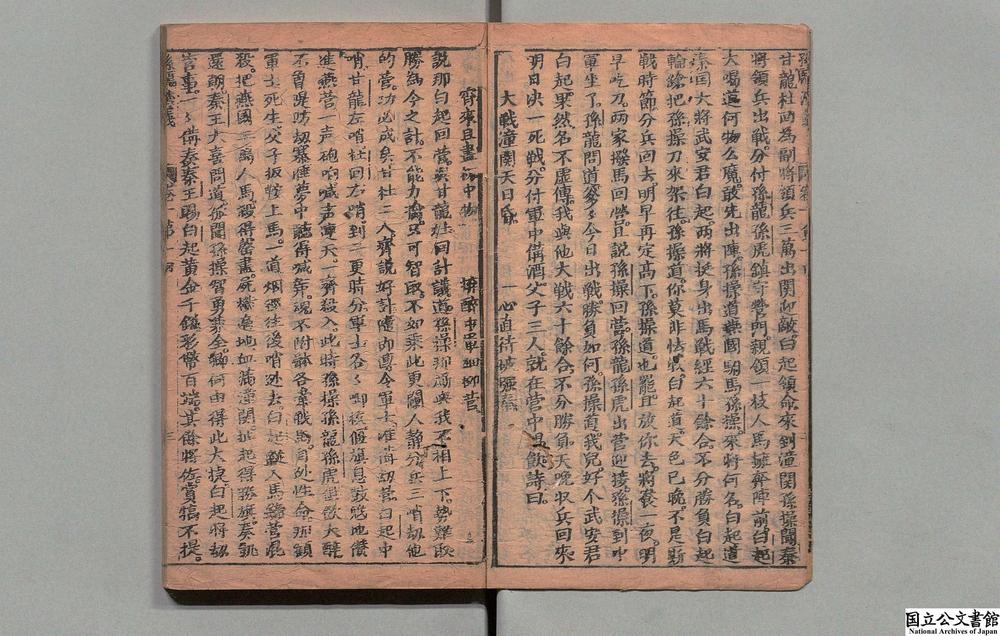 甘龍杜回為副將領兵三萬出関迎敵白起領命來到潼関孫操聞秦
將領兵出戦分付孫龍孫虎鎮守營門親領一枝人馬擁齊陣前白起
大喝道何物么魔敢先出陣孫操道燕國駙馬孫操來將何名白起道
秦国大將武安君白起两將挺身出馬戦經六十餘合不分勝負白起
輪鎗把孫操刀來架住孫操道你莫非怯戦白起道天色已晚不是厮
戦時節分兵回去明早再定高下孫操道也罷且放你去將養一夜明
早吃刀两家撥馬回營且說孫操回營孫龍孫虎出营迎接孫操到中
軍坐了孫龍問道爹〻今日出戦勝負如何孫操道我兒好个武安君
白起果然名不虛傳我與他大戦六十餘合不分勝負天晚收兵回來
明日决一死戦分付軍中俻酒父子三人就在营中 飲詩曰
大戦潼関天日昏 一心直待
齊來且盡 中物
說那白起回营與甘龍杜回計議道孫操 與我不相上下勢難取
勝為今之計不能力擒只可智取不如乘此更闌人静分兵三哨劫他
的营功必成矣甘杜二人齊說好計隨即傳令軍士准俻劫营白起中
哨甘龍左哨杜回右哨到三更時分軍士各〻啣枚偃旗息鼓悠地儹
進燕营一声砲响喊声連天一齊殺入此時孫操孫龍孫虎 飲大醉
不曾提防劫寨睡夢中聽得喊 魂不附体各尋戦馬 性命那顧
軍士死生父子扳鞍上馬一道烟徑往後哨逃去白起 人馬 营混
殺把燕國 离人馬殺得罄盡屍横遍地血滿潼関 起得勝旗奏凱
還朝秦王大喜問道孫操智勇 全 何由得此大捷白起將劫
营事一〻俻奏秦王賜白起黄金千鎰彩幣百端其餘將佐賞犒不提
国立公文書館
National Archives of Japan